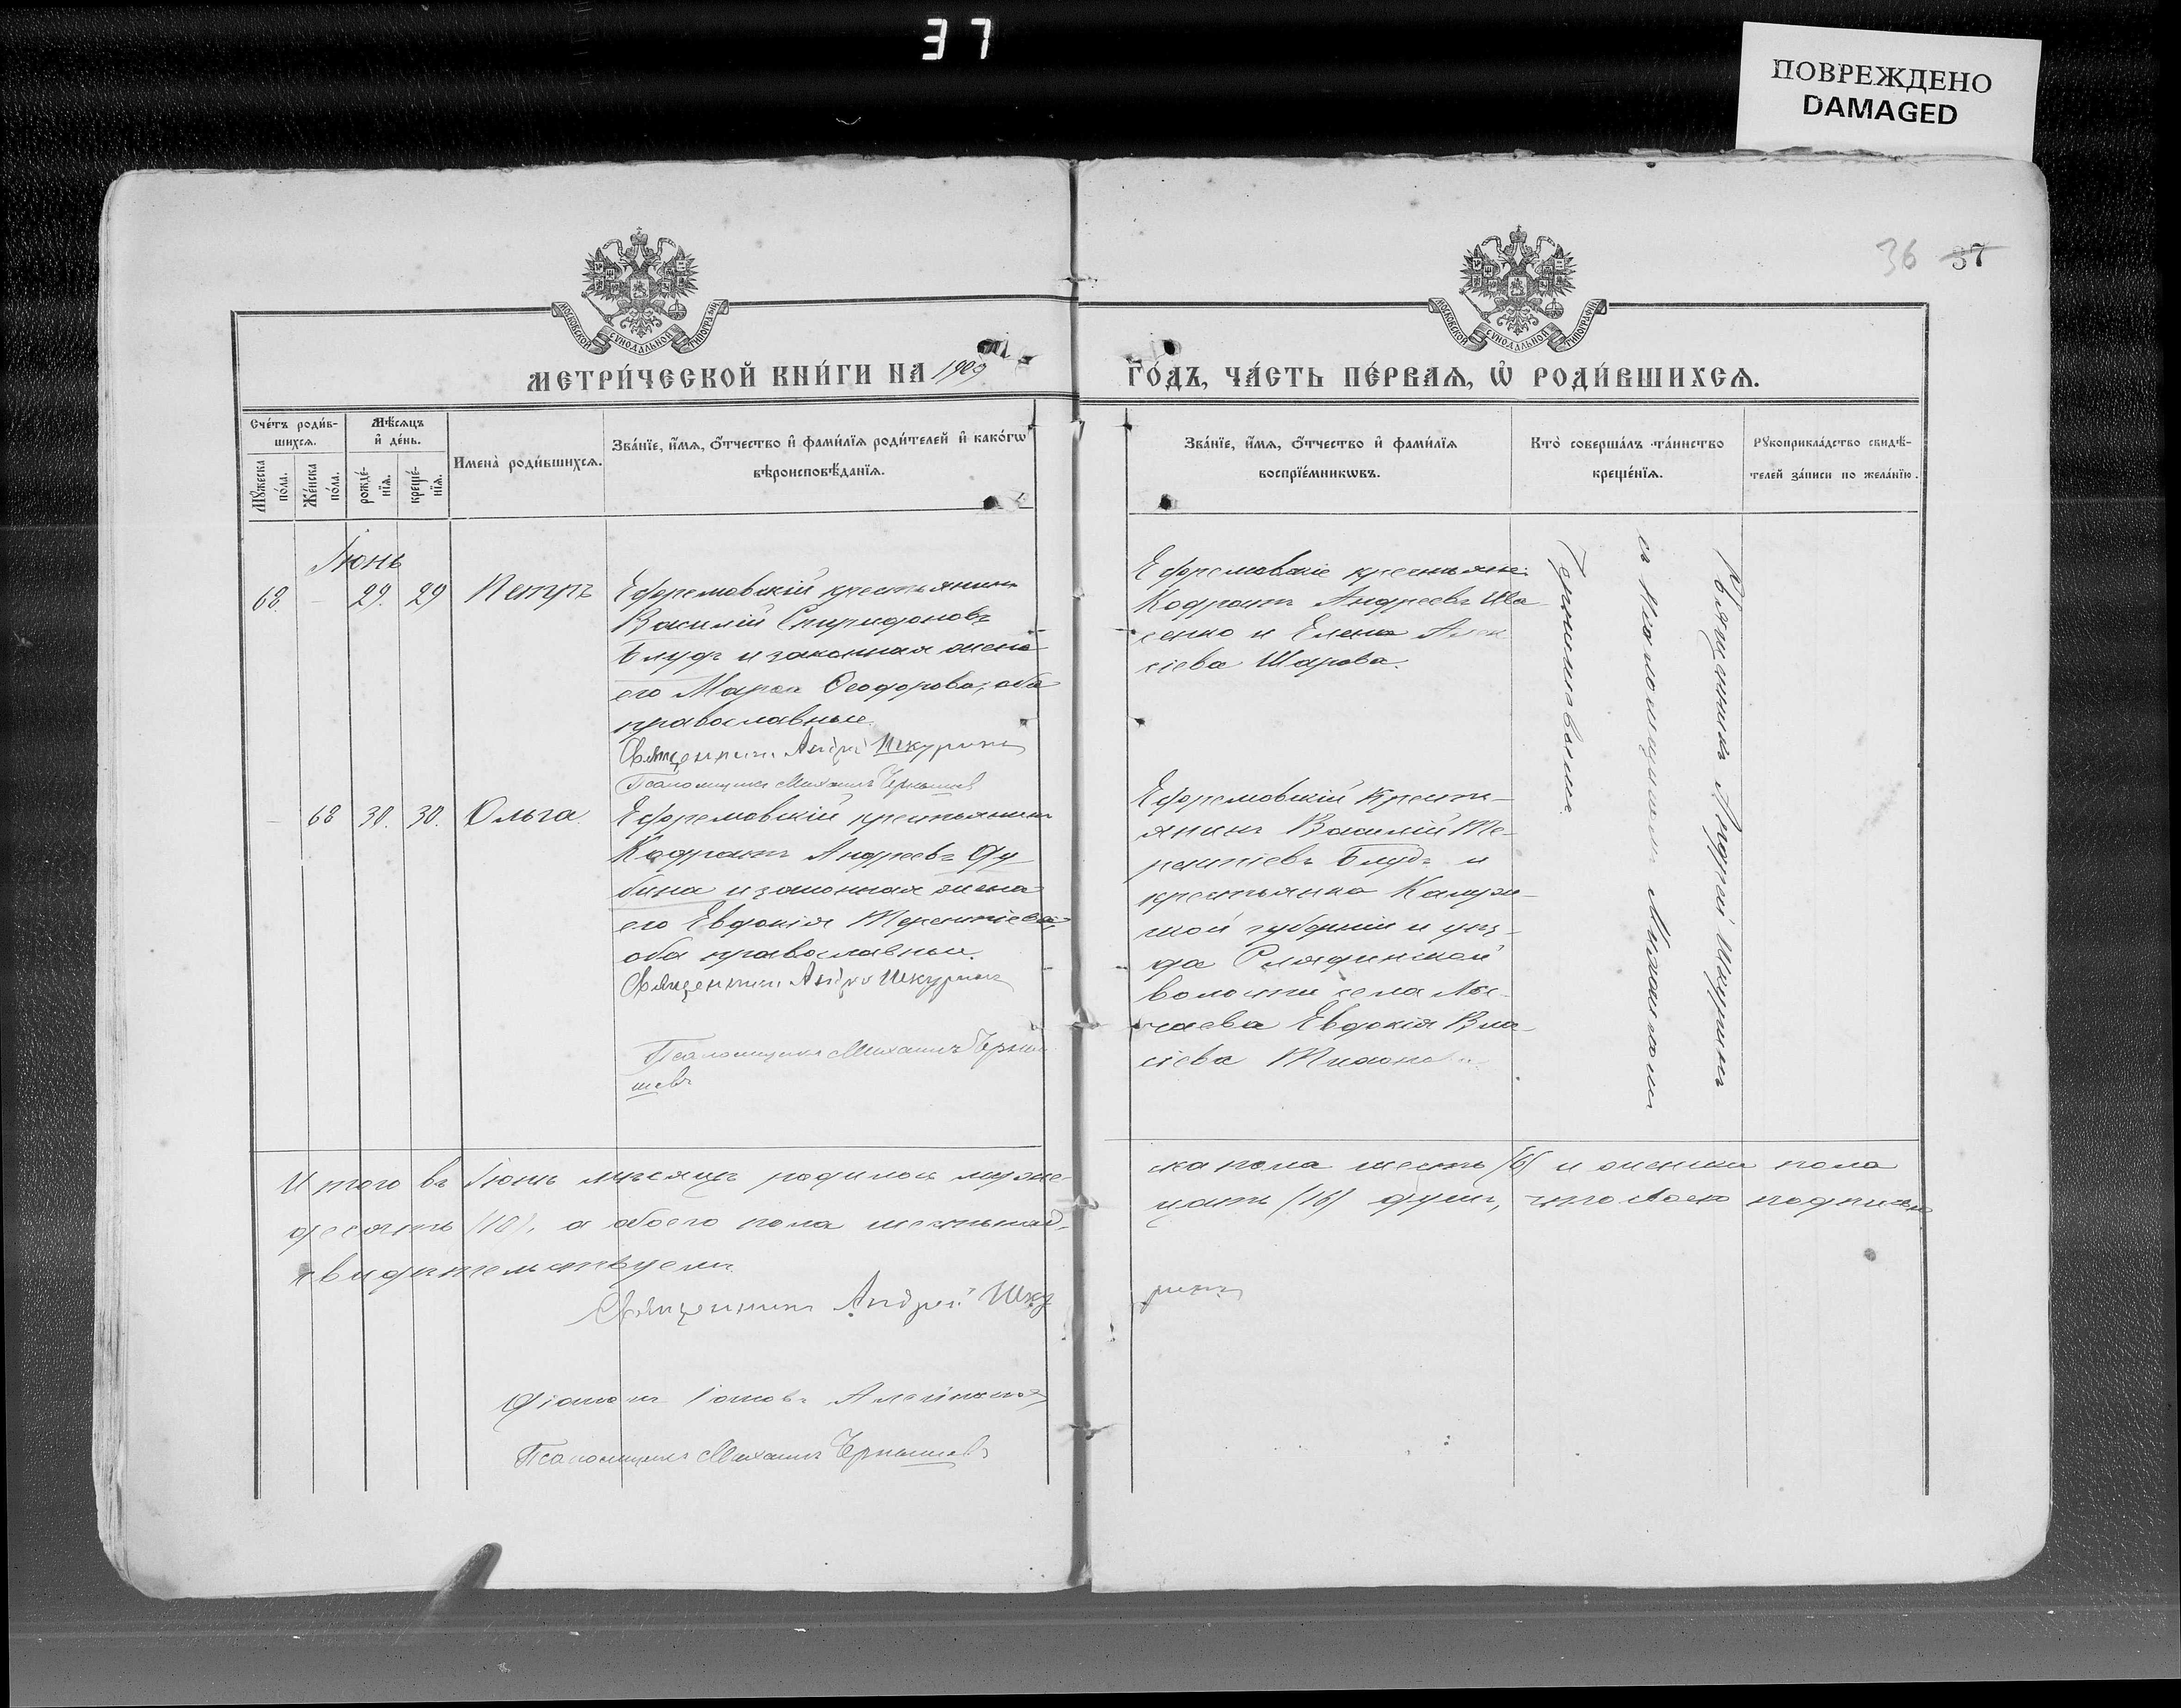 37
ПОВРЕЖДЕНО
DAMAGED
36 37
МОСКОВСКОЙ СѴНОДАЛЬНОЙ ТИПОГРАФІИ
МОСКОВСКОЙ СѴНОДАЛЬНОЙ ТИПОГРАФІИ
МЕТРИ́ЧЕСКОЙ КНИ́ГИ НА 1909
ГО́ДЪ, ЧА́СТЬ ПЕ́РВАѦ, Ѡ҆ РОДИ́ВШИХСѦ.
Сче́тъ роди́в-
шихсѧ.
Мѣ́сѧцъ
и҆ де́нь.
Мꙋ́жеска
по́ла.
Же́нска
по́ла.
рожде́-
нїѧ.
креще́-
нїѧ.
Имена̀ роди́вшихсѧ.
Зва́нїе, и҆́мѧ, ѻ҆́тчество и҆ фами́лїѧ роди́телей и҆ како́гѡ
вѣроисповѣ́данїѧ.
Зва́нїе, и҆́мѧ, ѻ҆́тчество и҆ фами́лїѧ
воспрїе́мникѡвъ.
Кто̀ соверша́лъ та́инство
креще́нїѧ.
Рꙋкоприкла́дство свидѣ́-
телей за́писи по жела́нїю.
Іюнь
68. – 29. 29 Петръ
Ефремовскій крестьянинъ
Василій Спиридоновъ
Блудъ и законная жена
его Марѳа Ѳеодорова, оба
православные.
Священникъ Андрей Шкуринъ
Псаломщикъ Михаилъ Чернышевъ
Ефремовскіе крестьяне:
Кодратъ Андреевъ
и Елена Алек
сіева Шарова.
Священникъ Андрей Шкуринъ
съ псаломщикомъ Михаиломъ
Чернышевымъ.
– 68 30. 30. Ольга.
Ефремовскій крестьянинъ
Кодратъ Андреевъ Ду
бина и законная жена
его Евдокія Терентіева,
оба православные.
Священникъ Андрей Шкуринъ
Псаломщикъ Михаилъ Черны
шевъ
Ефремовскій крестья-
янинъ Василій Те-
рентіевъ Блудъ и
крестьянка Калуж-
ской губерніи и уѣз-
да
волости села
Евдокія Вла-
сіева
Итого въ Іюнѣ мѣсяцѣ родилось муже-
ска пола шесть (6) и женска пола
десять (10), а обоего пола шестьнад-
цать (16) душъ, что своею подписью
свидѣтельствуемъ
Священникъ Андрей Шку
ринъ
Діаконъ Іаковъ
Псаломщикъ Михаилъ Чернышевъ